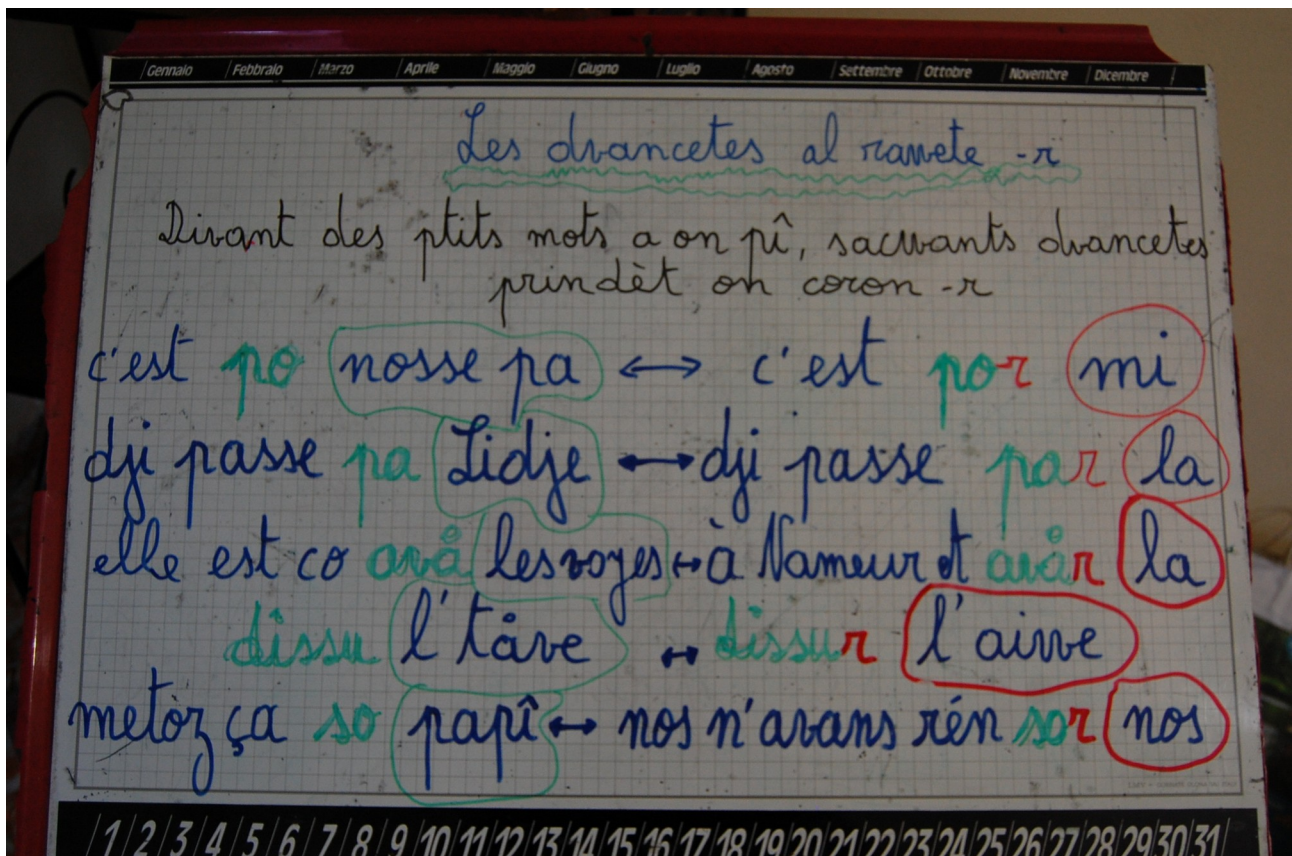 Gennaio Febbraio Marzo Aprile Maggio Giugno Luglio Agosto Settembre Ottobre Novembre Dicembre
Les dvancetes al rawete -r
Divant des ptits mots a on pî, sacwants dvancetes
prindèt on coron -r
c'est po nosse pa ↔ c'est por mi
dji passe pa Lidje ↔ dji passe par la
elle est co avå les voyes ↔ à Nameur et avår la
dissu l' tåve ↔ dissur l' aiwe
metòz ça so papî ↔ nos n'avans rén sor nos
1 2 3 4 5 6 7 8 9 10 11 12 13 14 15 16 17 18 19 20 21 22 23 24 25 26 27 28 29 30 31